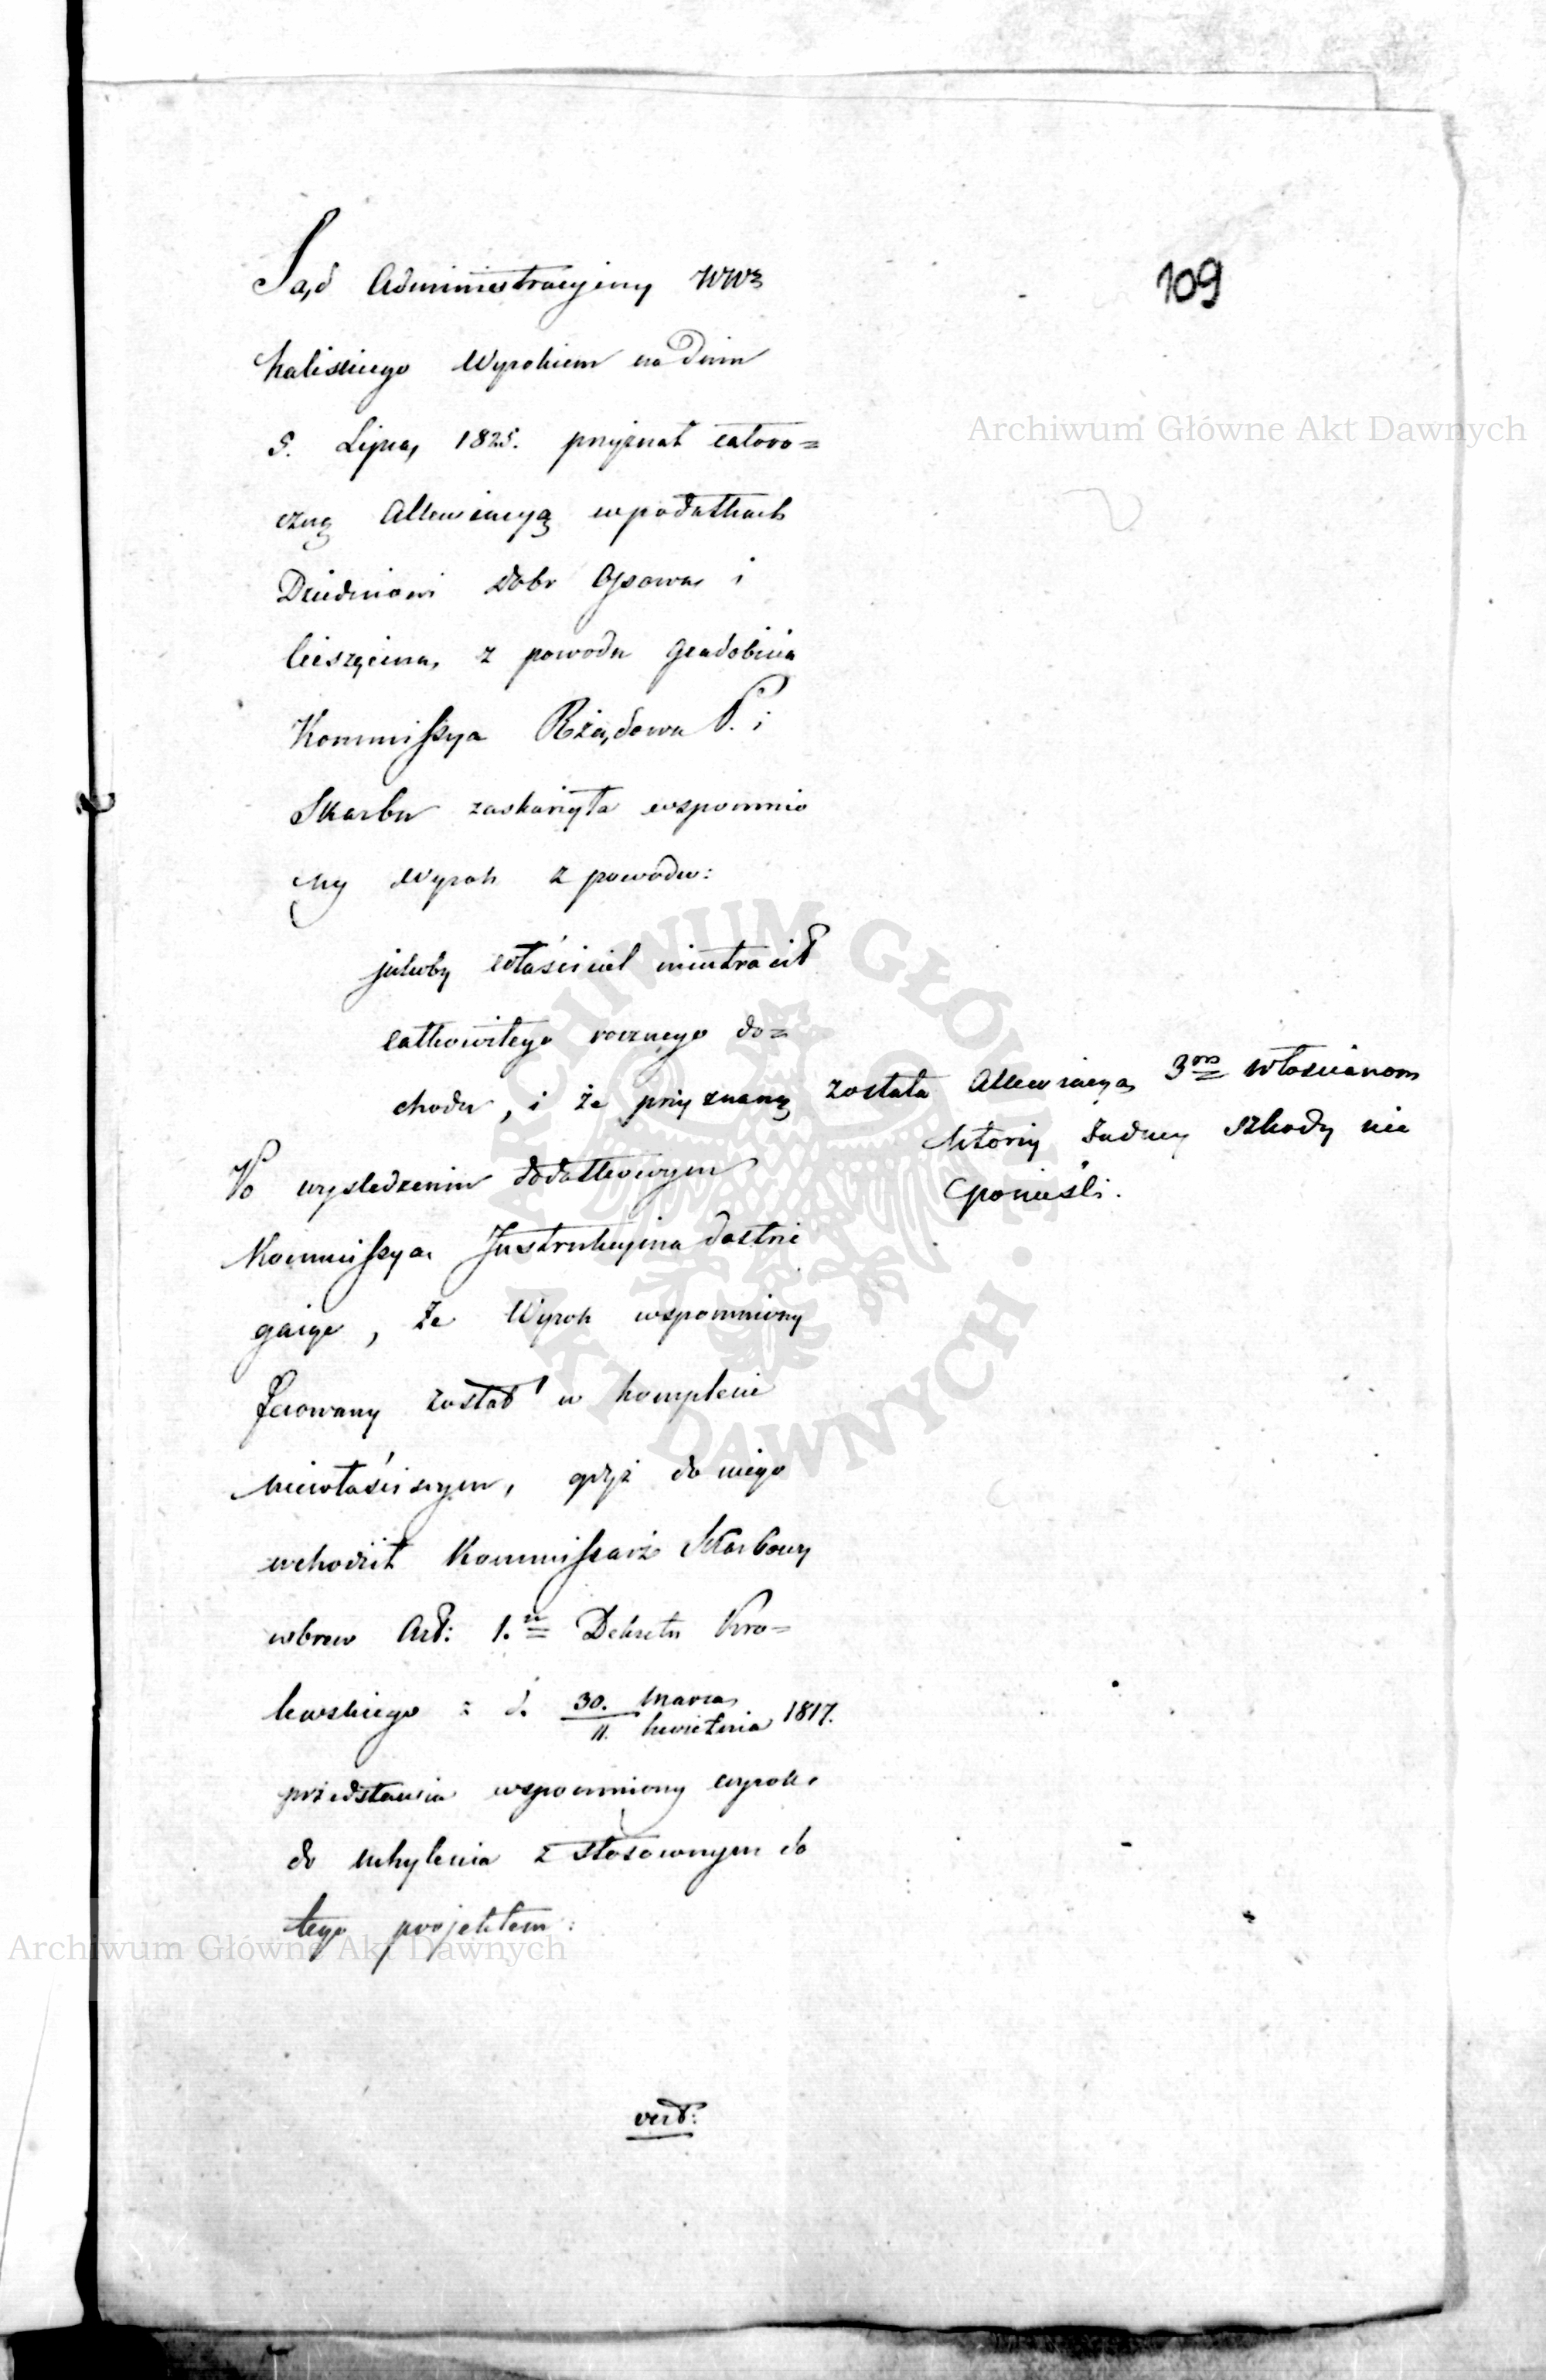 109
Sąd Administracyiny WWo
Kaliskiego Wyrokiem na Dniu
5. Lipca, 1825. przyznał całoro=
czną Allewiacyą w podatkach
Dziedzicowi dobr Opsowa i
Cieszęcina, z powodu Gradobicia
Kommissya Rządowa P. i
Skarbu zaskarżyła wspomnio
ny Wyrok z powodu:
jakoby właściciel nieutracił
całkowitego rocznego do=
chodu, i że przyznaną została Allewiacya, 3m włoscianom
którzy żadney szkody nie
ponieśli.
Po wysledzeniu dodatkowym
Kommissya Instrukcyina dostrze
gaiąc, że Wyrok wspomniony
ferowany został w komplecie
niewłaściwym, gdyż do niego
wchodził Kommissarz Skarbowy
wbrew Art: 1. Dekretu Kro=
lewskiego z d. 30. Marca / 11. kwietnia 1817.
przedstawia wspomniony wyrok
do uchylenia z stosownym do
tego projektem:
vert:
Archiwum Główne Akt Dawnych
ARCHIWUM GŁÓWNE AKT DAWNYCH
Archiwum Główne Akt Dawnych